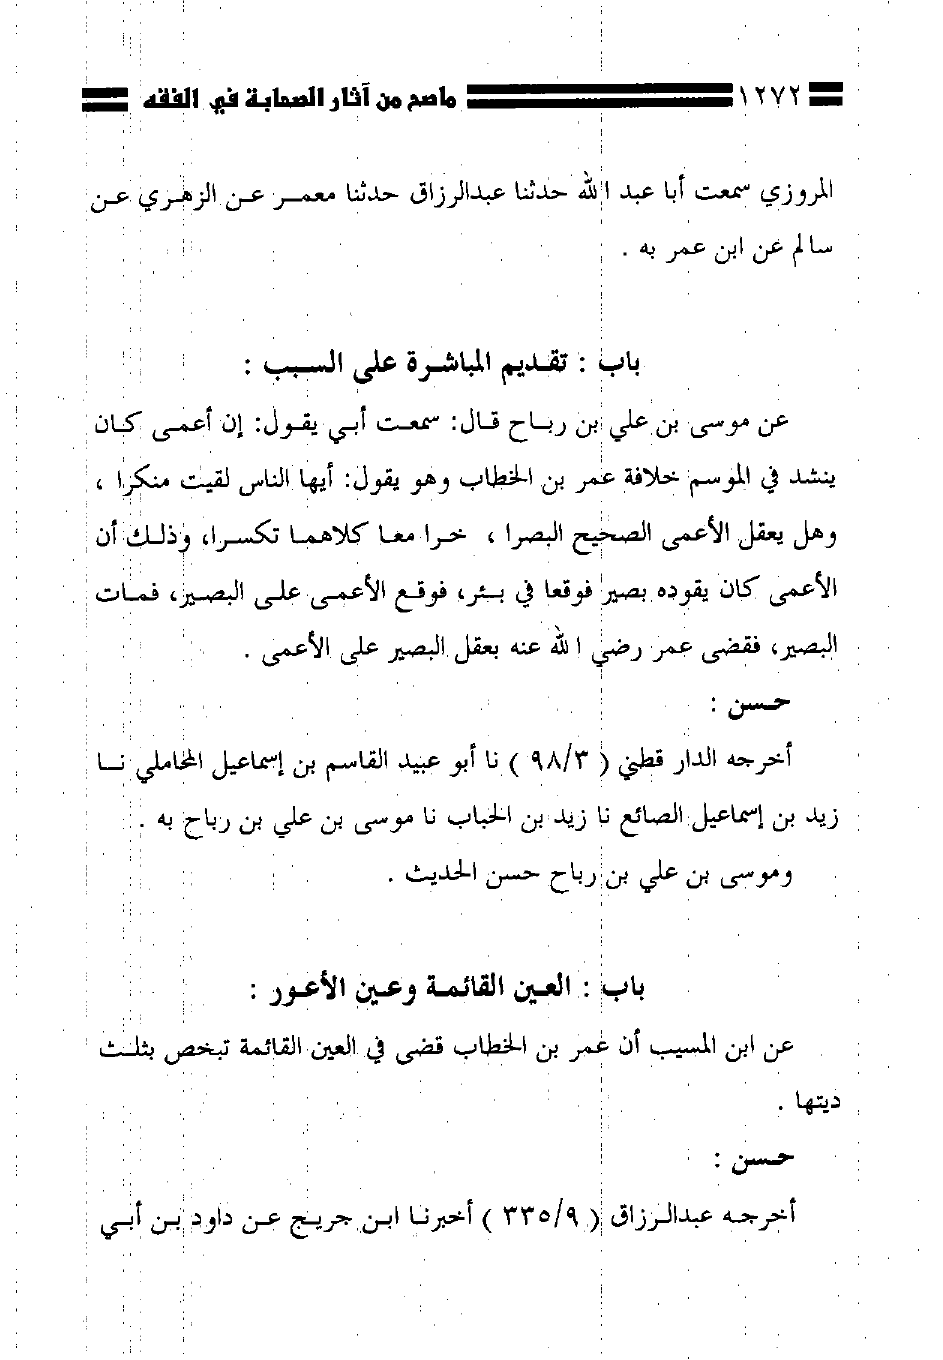 ١٢٧٢ ماصح من آثار الصحابة في الفقه
المروزي سمعت أبا عبد الله حدثنا عبدالرزاق حدثنا معمر عن الزهري عن
سالم عن ابن عمر به .
باب : تقديم المباشرة على السبب :
عن موسى بن علي بن رباح قال: سمعت أبي يقول: إن أعمى كان
ينشد في الموسم خلافة عمر بن الخطاب وهو يقول: أيها الناس لقيت منكرا ،
وهل يعقل الأعمى الصحيح البصرا ، خرا معا كلاهما تكسرا، وذلك أن
الأعمى كان يقوده بصير فوقعا في بئر، فوقع الأعمى على البصير، فمات
البصير، فقضى عمر رضي الله عنه بعقل البصير على الأعمى .
حسن :
أخرجه الدار قطني ( ٩٨/٣ ) نا أبو عبيد القاسم بن إسماعيل المحاملي نا
زيد بن إسماعيل الصائع نا زيد بن الحباب نا موسى بن علي بن رباح به .
وموسى بن علي بن رباح حسن الحديث .
باب : العين القائمة وعين الأعور :
عن ابن المسيب أن عمر بن الخطاب قضى في العين القائمة تبخص بثلث
ديتها .
حسن :
أخرجه عبدالرزاق ( ٣٣٥/٩ ) أخبرنا ابن جريج عن داود بن أبي